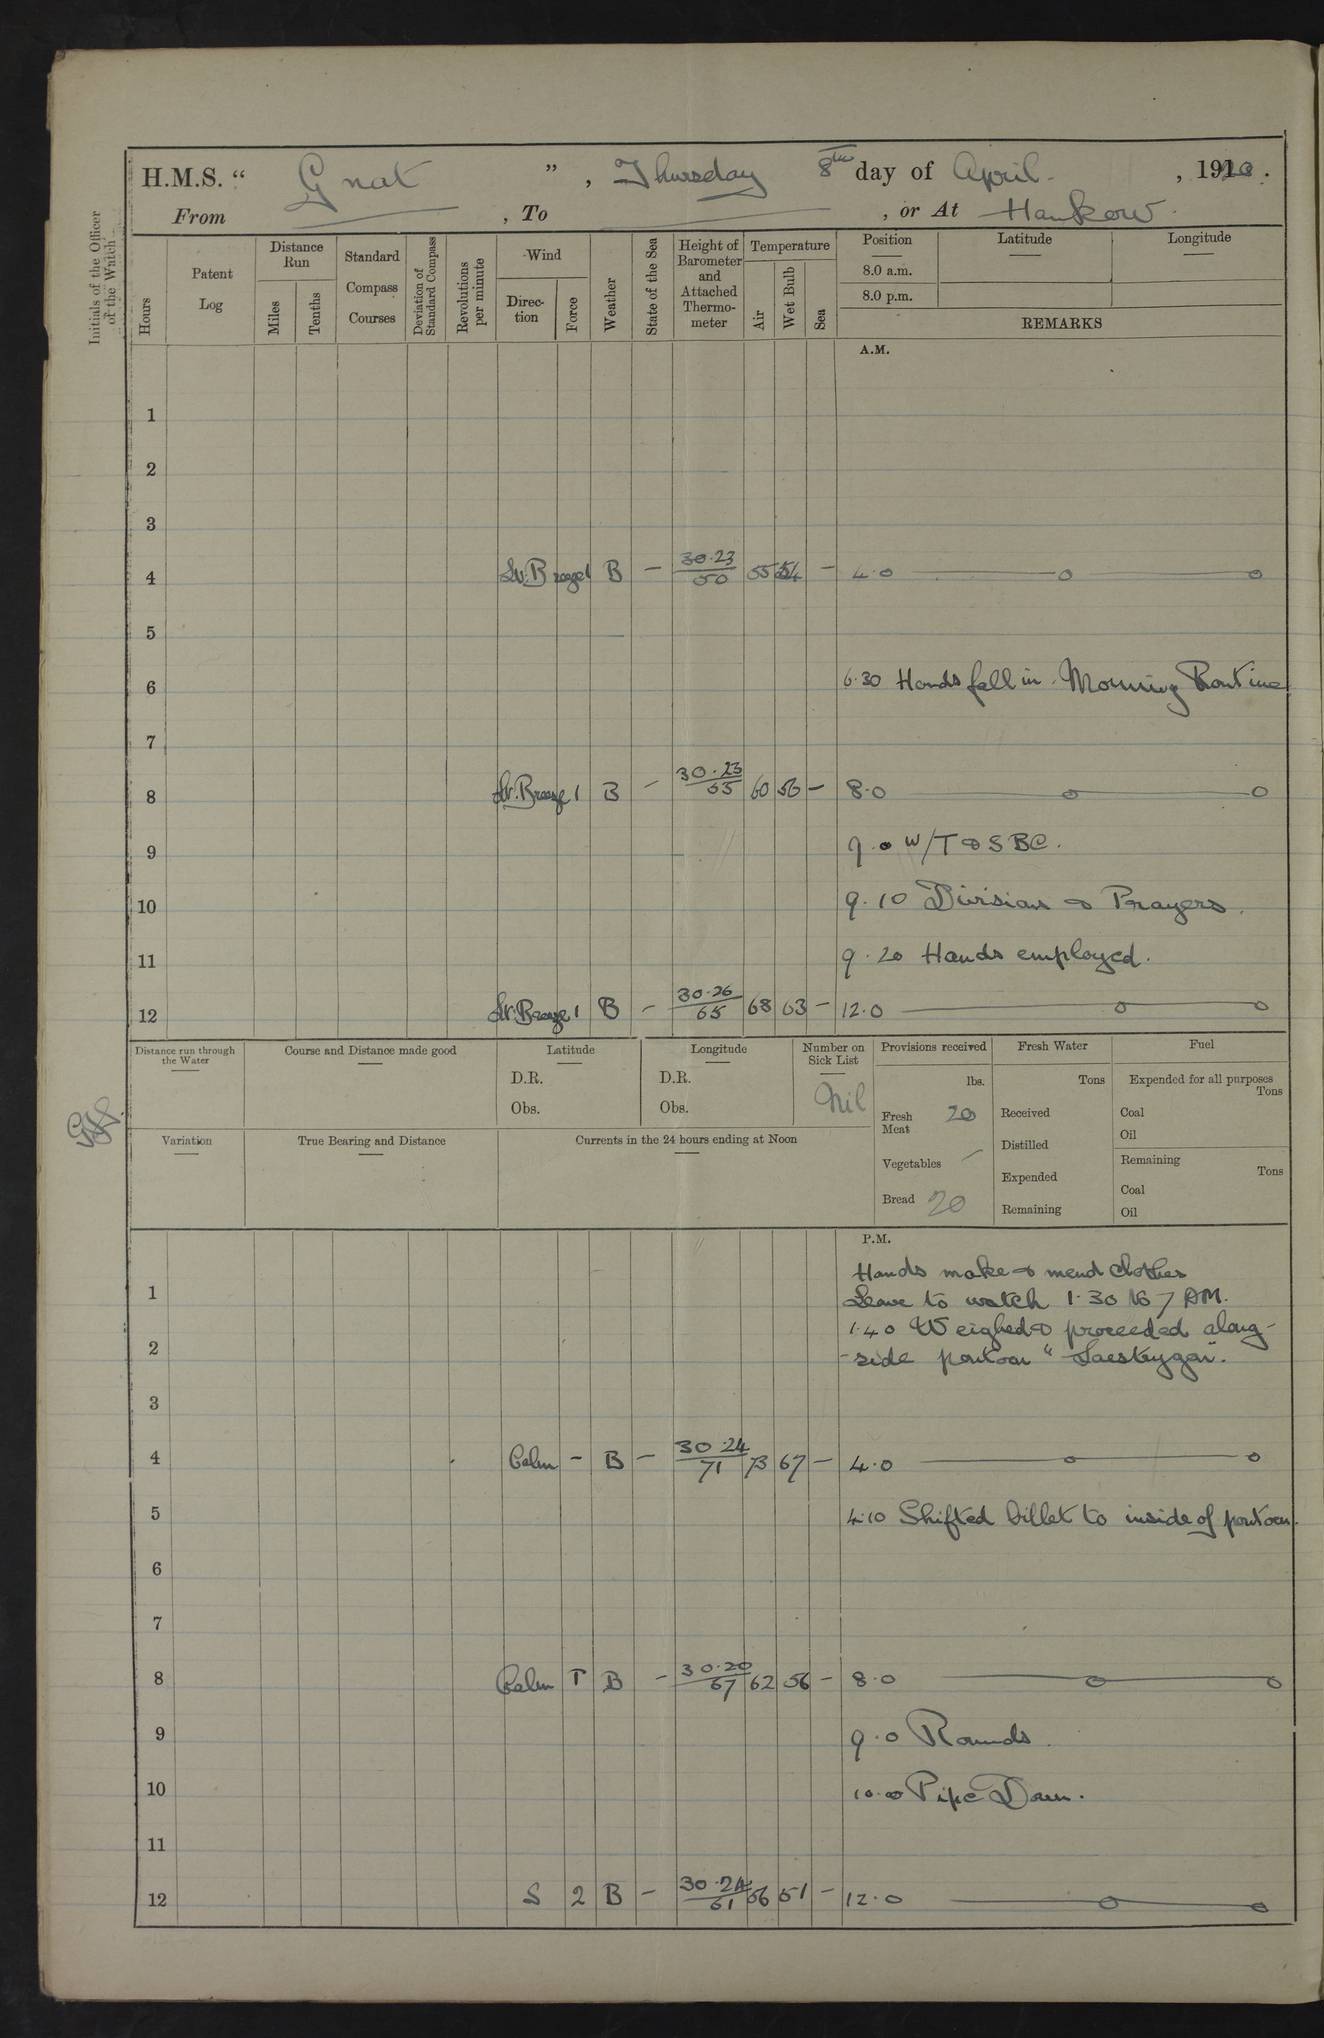 H.M.S. “ Gnat ” , Thursday 8th day of April , 1920 .
From , To , or At Hankow.
Initials of the Officer of the Watch
Hours
Patent Log
Distance Run
Miles
Tenths
Standard Compass Courses
Deviation of Standard Compass
Revolutions per minute
Wind
Direction
Force
Weather
State of the Sea
Height of Barometer and Attached Thermometer
Temperature
Air
Wet Bulb
Sea
Position
8.0 a.m.
8.0 p.m.
Latitude
Longitude
REMARKS
A.M.
1
2
3
4 Lt. Breeze 1 B — 30.23 / 50 55 54 — 4.0
5
6 6.30 Hands fell in. Morning Routine
7
8 Lt. Breeze 1 B — 30.23 / 55 60 56 — 8.0
9 9.0 W/T & S B C.
10 9.10 Divisions & Prayers.
11 9.20 Hands employed.
12 Lt. Breeze 1 B — 30.26 / 65 68 63 — 12.0
Distance run through the Water
Course and Distance made good
Latitude
D.R.
Obs.
Longitude
D.R.
Obs.
Number on Sick List
Nil
Provisions received
lbs.
Fresh Meat 20
Vegetables —
Bread 20
Fresh Water
Tons
Received
Distilled
Expended
Remaining
Fuel
Expended for all purposes
Tons
Coal
Oil
Remaining
Tons
Coal
Oil
Variation
True Bearing and Distance
Currents in the 24 hours ending at Noon
P.M.
Hands make & mend clothes
1 Leave to watch 1.30 to 7 AM.
1.40 Weighed & proceeded along-
2 -side pontoon "
3
4 Calm — B — 30.24 / 71 73 67 — 4.0
5 4.10 Shifted billet to inside of pontoon.
6
7
8 Calm B — 30.20 / 67 62 56 — 8.0
9 9.0 Rounds.
10 10.0 Pipe Down.
11
12 S 2 B — 30.24 / 61 56 51 — 12.0